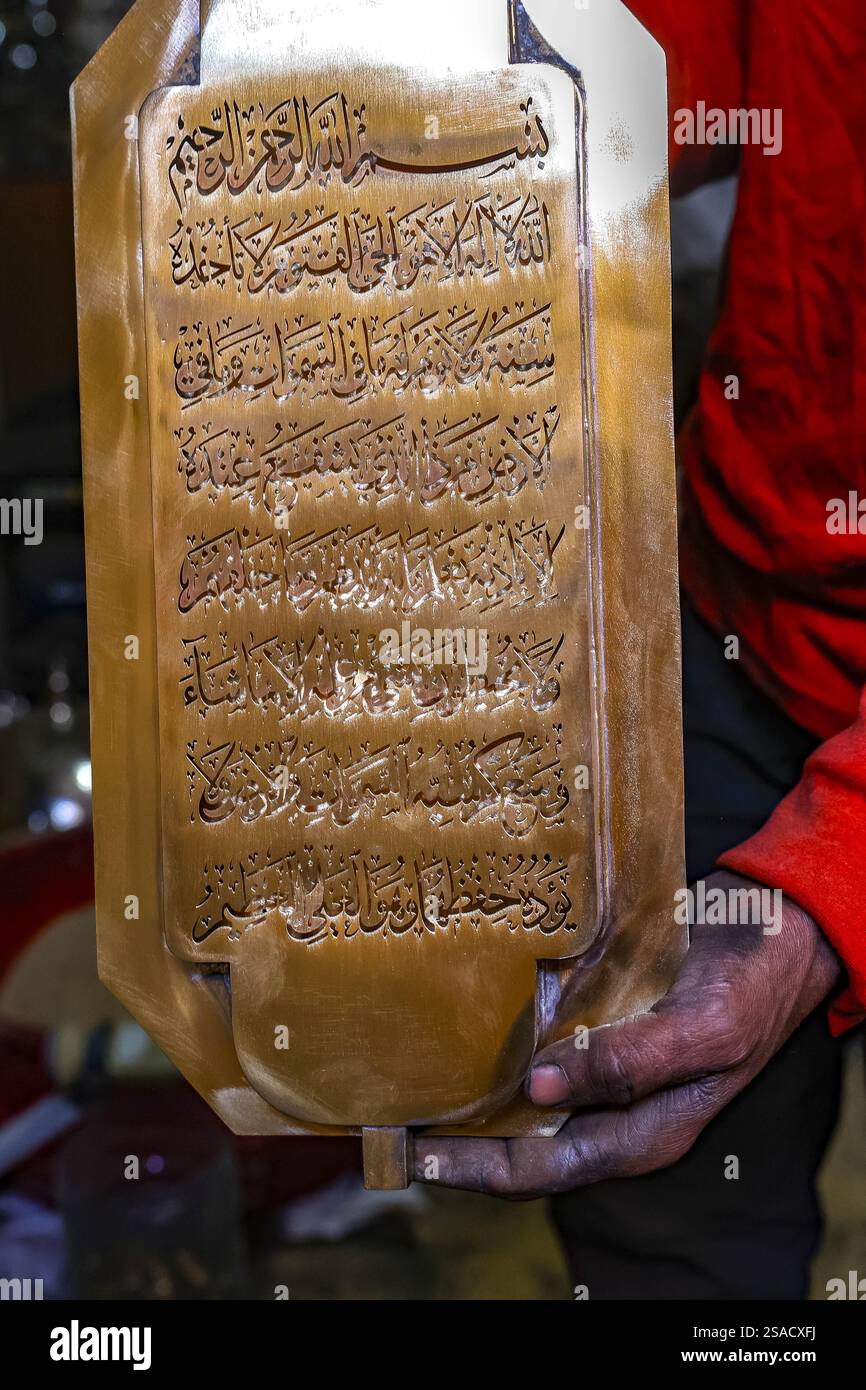 بسم الله الرحمن الرحيم
الله لا إله إلا هو الحي القيوم لا تأخذه
سنة ولا نوم له ما في السموات وما في
الأرض من ذا الذي يشفع عنده
إلا بإذنه يعلم ما بين أيديهم وما خلفهم
ولا يحيطون بشيء من علمه إلا بما شاء
وسع كرسيه السموات والأرض ولا
يؤده حفظهما وهو العلي العظيم
alamy
Image ID: 2SACXFJ
www.alamy.com